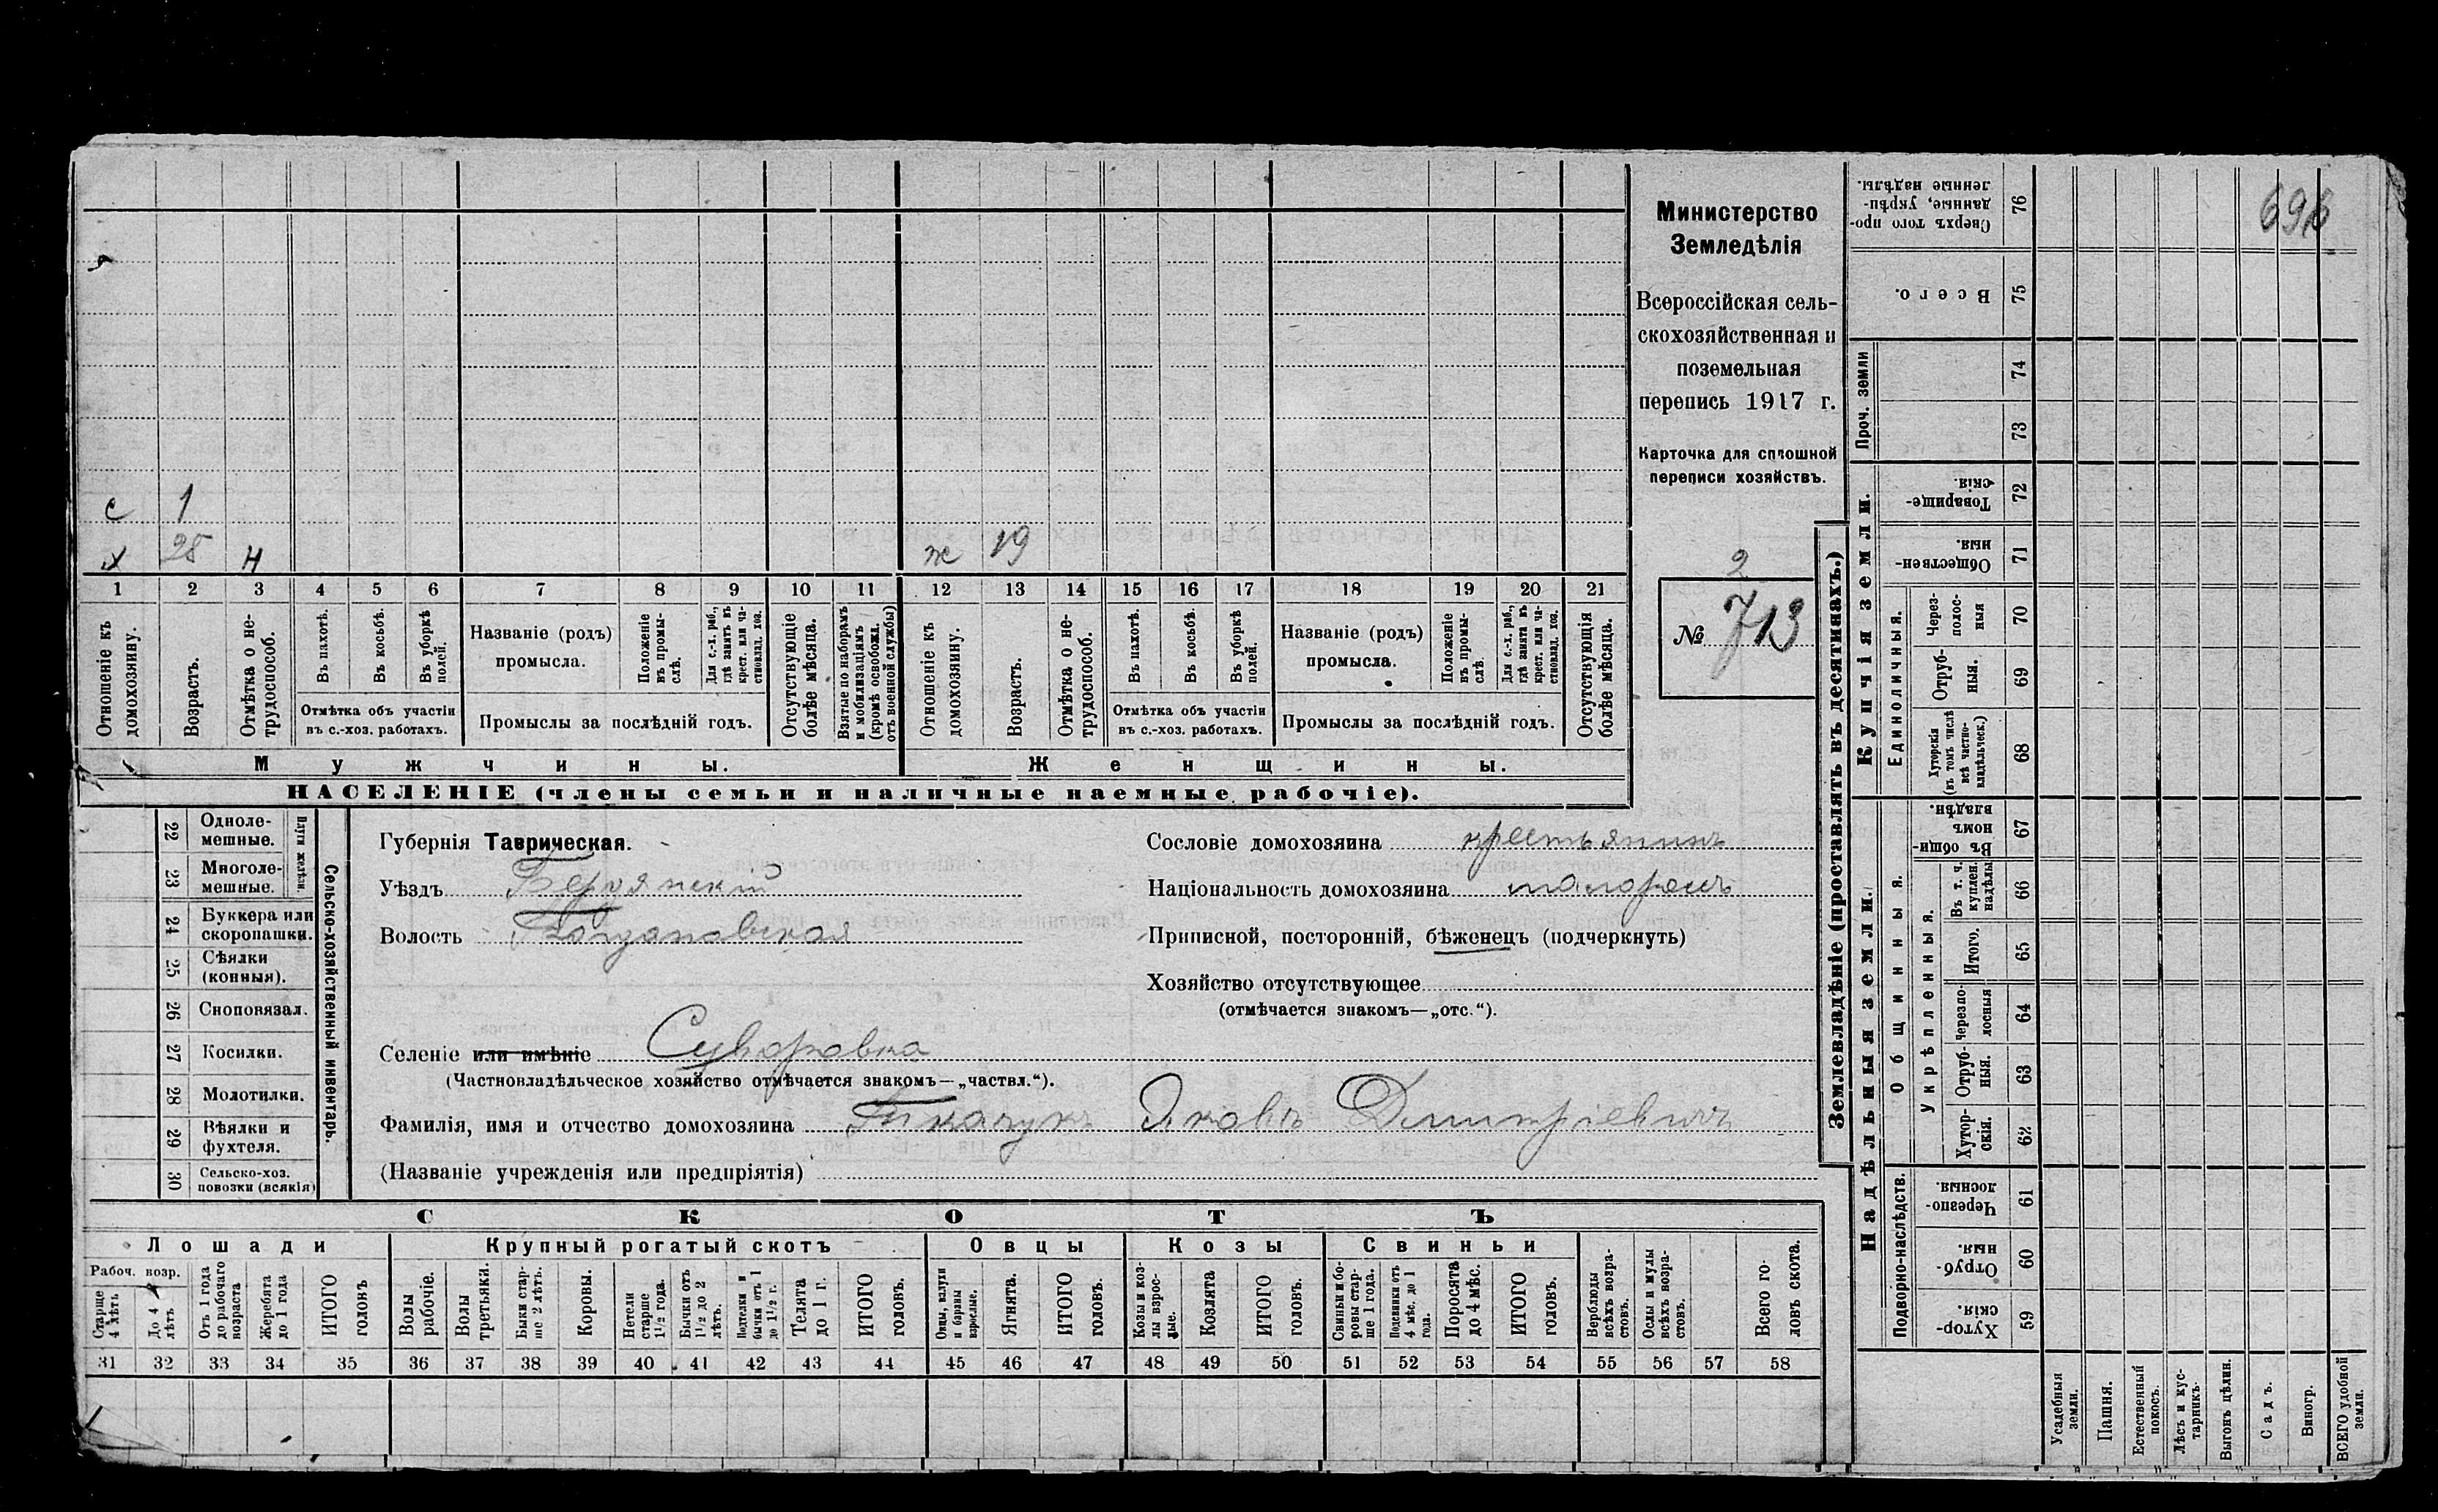 698
Министерство
Земледѣлія
Всероссійская сель-
скохозяйственная и
поземельная
перепись 1917 г.
Карточка для сплошной
переписи хозяйствъ.
2
№ 713
с 1
х 28 н
ж 19
1 2 3 4 5 6 7 8 9 10 11 12 13 14 15 16 17 18 19 20 21
Отношеніе къ домохозяину.
Возрастъ.
Отмѣтка о не-трудоспособ.
Въ пахотѣ.
Въ косьбѣ.
Въ уборкѣ полей.
Отмѣтка объ участіи
въ с.-хоз. работахъ.
Названіе (родъ)
промысла.
Положеніе въ промы-слѣ.
Для с.-х. раб., гдѣ занятъ въ крест. или ча-стновлад. хоз.
Промыслы за послѣдній годъ.
Отсутствующіе болѣе мѣсяца.
Взятые по наборамъ и мобилизаціямъ (кромѣ освобожд. отъ военной службы)
Отношеніе къ домохозяину.
Возрастъ.
Отмѣтка о не-трудоспособ.
Въ пахотѣ.
Въ косьбѣ.
Въ уборкѣ полей.
Отмѣтка объ участіи
въ с.-хоз. работахъ.
Названіе (родъ)
промысла.
Положеніе въ промы-слѣ.
Для с.-х. раб., гдѣ занята въ крест. или ча-стновлад. хоз.
Промыслы за послѣдній годъ.
Отсутствующія болѣе мѣсяца.
Мужчины.
Женщины.
НАСЕЛЕНІЕ (члены семьи и наличные наемные рабочіе).
22 Одноле-мешные.
23 Многоле-мешные.
Плуги желѣзн.
24 Буккера или скоропашки.
25 Сѣялки (конныя).
26 Сноповязал.
27 Косилки.
28 Молотилки.
29 Вѣялки и фухтеля.
30 Сельско-хоз. повозки (всякія)
Сельско-хозяйственный инвентарь.
Губернія Таврическая.
Уѣздъ Бердянскій
Волость Богдановская
Селеніе или имѣніе Суворовка
(Частновладѣльческое хозяйство отмѣчается знакомъ—„частвл.“).
Фамилія, имя и отчество домохозяина Ткачукъ Яковъ Дмитріевичъ
(Названіе учрежденія или предпріятія)
Сословіе домохозяина крестьянинъ
Національность домохозяина малороссъ
Приписной, посторонній, бѣженецъ (подчеркнуть)
Хозяйство отсутствующее
(отмѣчается знакомъ—„отс.“).
СКОТЪ
Лошади
Крупный рогатый скотъ
Овцы
Козы
Свиньи
Рабоч. возр.
Старше 4 лѣтъ
До 4 лѣтъ
Отъ 1 года до рабочаго возраста
Жеребята до 1 года
ИТОГО головъ
Волы рабочіе.
Волы третьяки.
Быки стар-ше 2 лѣтъ.
Коровы.
Нетели старше 1½ года.
Бычки отъ 1½ до 2 лѣтъ.
Подтелки и бычки отъ 1 до 1½ г.
Телята до 1 г.
ИТОГО головъ.
Овцы, валухи и бараны взрослые.
Ягнята.
ИТОГО головъ.
Козы и коз-лы взрос-лые.
Козлята
ИТОГО головъ.
Свиньи и бо-ровы стар-ше 1 года.
Подсвинки отъ 4 мѣс. до 1 года.
Поросята до 4 мѣс.
ИТОГО головъ.
Верблюды всѣхъ возра-стовъ.
Ослы и мулы всѣхъ возра-стовъ.
Всего го-ловъ скота.
31 32 33 34 35 36 37 38 39 40 41 42 43 44 45 46 47 48 49 50 51 52 53 54 55 56 57 58
Землевладѣніе (проставлять въ десятинахъ.)
Надѣльныя земли.
Купчія земли.
Проч. земли
Подворно-наслѣдств.
Общинныя.
Укрѣпленныя.
Единоличныя.
Сверхъ того про-данные, укрѣп-ленные надѣлы. 76
Всего. 75
74
73
Товарище-скія. 72
Обществен-ныя. 71
Через-полос-ныя 70
Отруб-ныя. 69
Хуторскія (въ томъ числѣ всѣ частно-владѣльческ.) 68
Въ общи-номъ владѣн. 67
Въ т. ч. куплен. надѣлы 66
Итого. 65
Черезпо-лосныя 64
Отруб-ныя. 63
Хутор-скія. 62
Черезпо-лосныя. 61
Отруб-ныя. 60
Хутор-скія. 59
Усадебныя земли.
Пашня.
Естественный покосъ.
Лѣсъ и кус-тарникъ.
Выгонъ цѣлин.
Садъ.
Виногр.
ВСЕГО удобной земли.